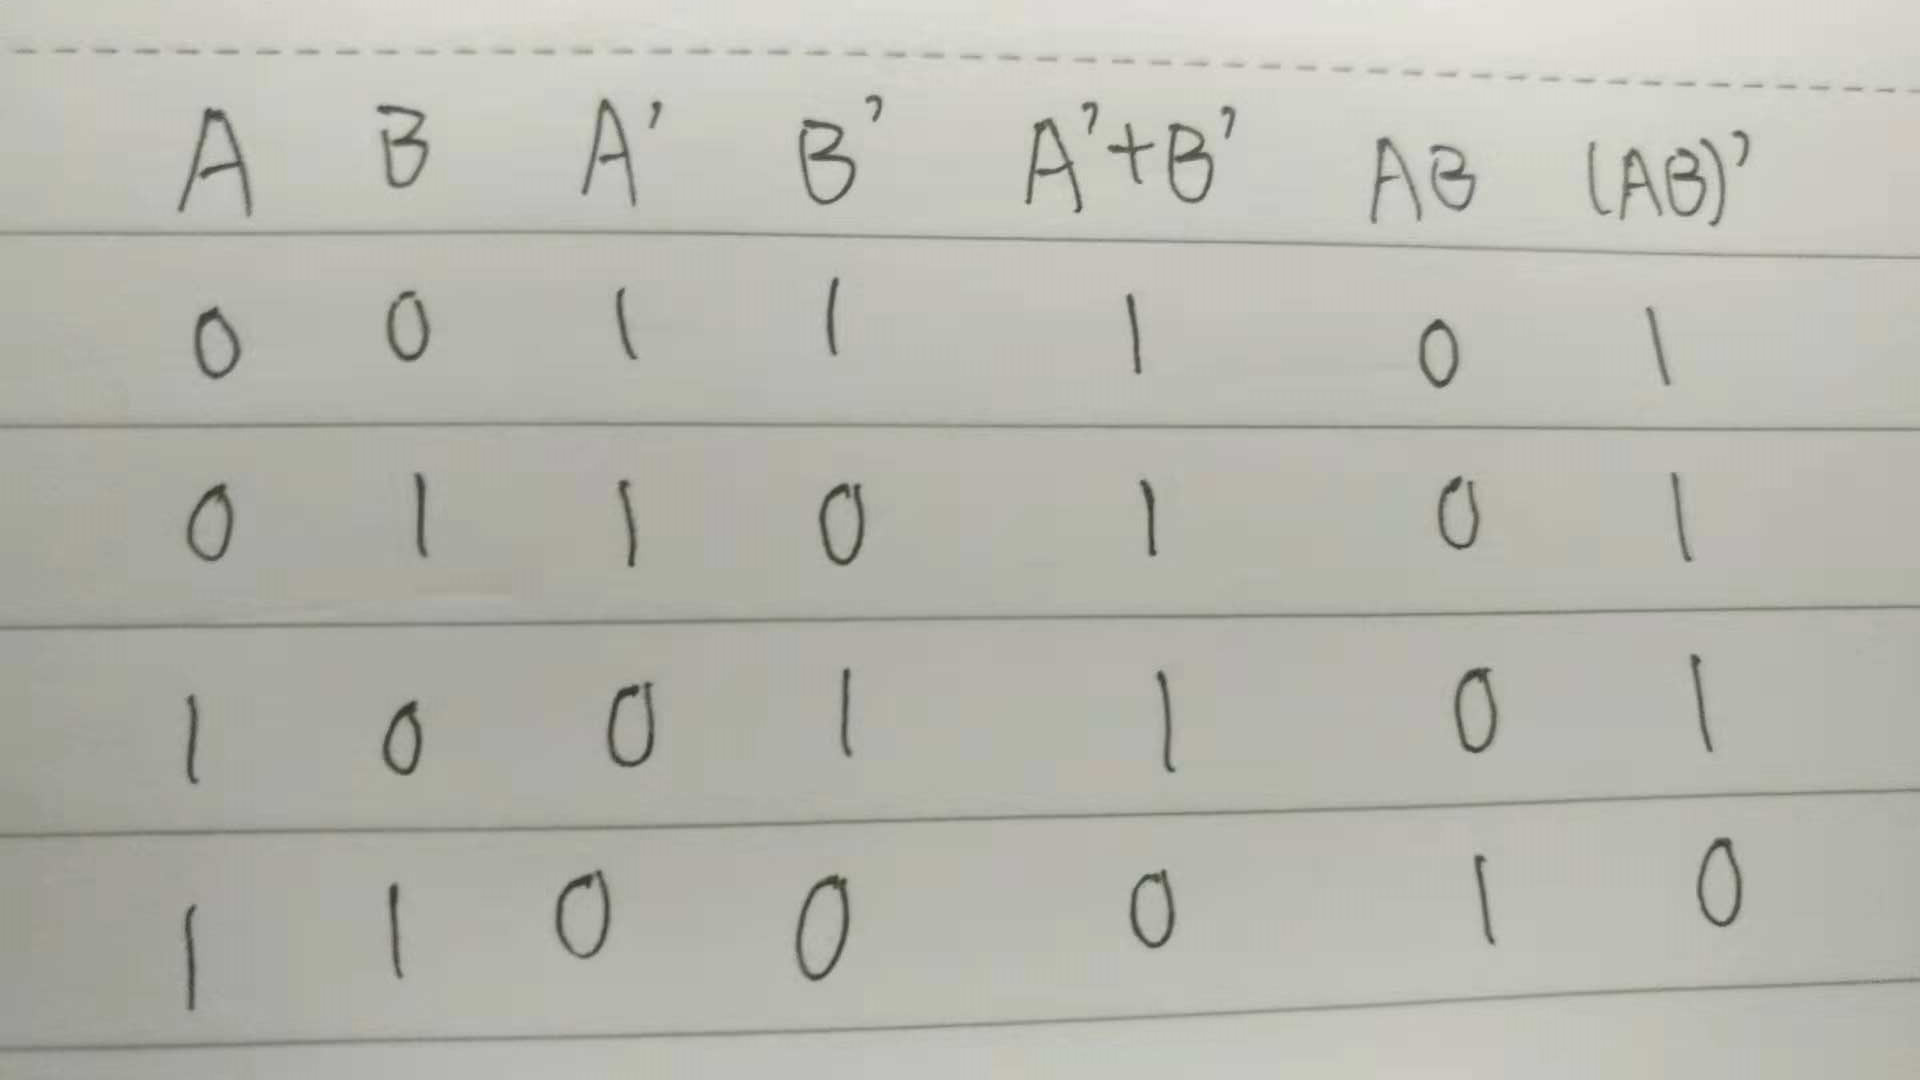 A B A' B' A'+B' AB (AB)'
0 0 1 1 1 0 1
0 1 1 0 1 0 1
1 0 0 1 1 0 1
1 1 0 0 0 1 0